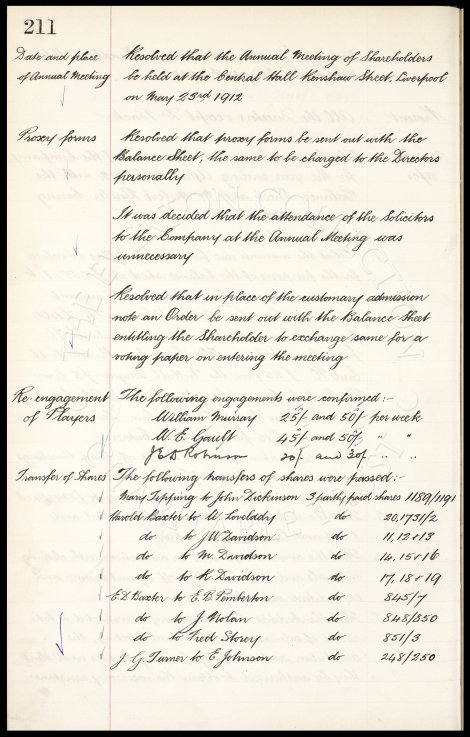 211
Date and place Resolved that the Annual Meeting of Shareholders
of Annual Meeting be held at the Central Hall Renshaw Street, Liverpool
on May 23rd 1912
Proxy forms Resolved that proxy forms be sent out with the
Balance Sheet, the same to be charged to the Directors
personally
It was decided that the attendance of the Solicitors
to the Company at the Annual Meeting was
unnecessary
Resolved that in place of the customary admission
note an Order be sent out with the Balance Sheet
entitling the Shareholder to exchange same for a
voting paper on entering the meeting
Re-engagement The following engagements were confirmed:-
of Players William Murray 25/- and 50/- per week
W. E. Gault 45/- and 50/- " "
Robinson and 30/- " "
Transfer of Shares The following transfers of shares were passed:-
Mary Tipping to John Dickinson 3 partly paid shares 1189/1191
Harold Baxter to W. Lovelady do 20,1731/2
do to J W. Davidson do 11, 12 + 13
do to M. Davidson do 14, 15 + 16
do to R Davidson do 17, 18 + 19
E.D. Baxter to E. B. Pemberton do 845/7
do to J. Nolan do 848/850
do to Fred Storey do 851/3
J. G. Turner to E Johnson do 248/250